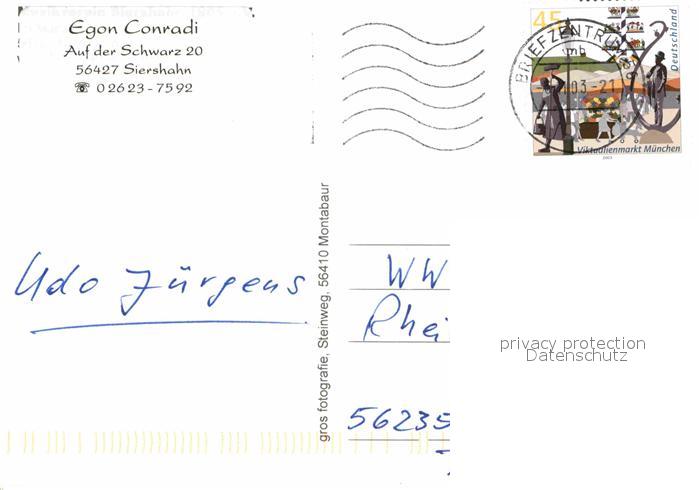 Egon Conradi
Auf der Schwarz 20
56427 Siershahn
☏ 02623-7592
45
Deutschland
BRIEFZENTRUM 56
mb
03-21
Viktualienmarkt München
2003
gros fotografie, Steinweg, 56410 Montabaur
Udo Jürgens
WW
Rhei
56235
privacy protection
Datenschutz